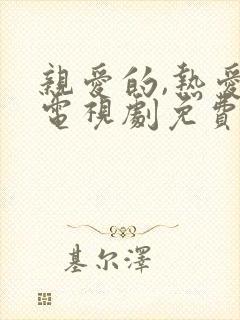 親愛的,熱愛
電視劇免費
基尔澤